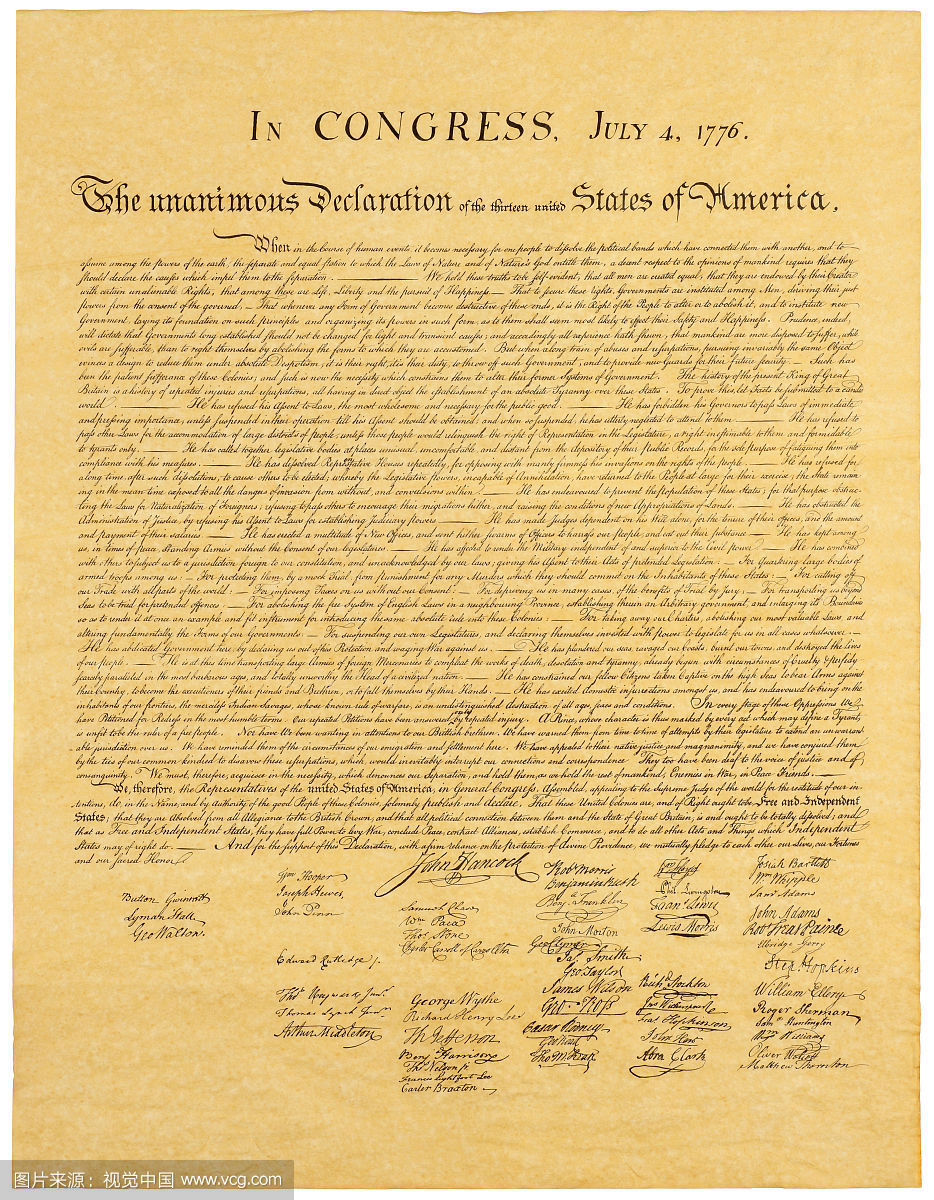 IN CONGRESS, JULY 4, 1776.
The unanimous Declaration of the thirteen united States of America,
When in the Course of human events, it becomes necessary for one people to dissolve the political bands which have connected them with another, and to
assume among the powers of the earth, the separate and equal station to which the Laws of Nature and of Nature's God entitle them, a decent respect to the opinions of mankind requires that they
should declare the causes which impel them to the separation. We hold these truths to be self-evident, that all men are created equal, that they are endowed by their Creator
with certain unalienable Rights, that among these are Life, Liberty and the pursuit of Happiness.— That to secure these rights, Governments are instituted among Men, deriving their just
powers from the consent of the governed, — That whenever any Form of Government becomes destructive of these ends, it is the Right of the People to alter or to abolish it, and to institute new
Government, laying its foundation on such principles and organizing its powers in such form, as to them shall seem most likely to effect their Safety and Happiness. Prudence, indeed,
will dictate that Governments long established should not be changed for light and transient causes; and accordingly all experience hath shewn, that mankind are more disposed to suffer, while
evils are sufferable, than to right themselves by abolishing the forms to which they are accustomed. But when a long train of abuses and usurpations, pursuing invariably the same Object
evinces a design to reduce them under absolute Despotism, it is their right, it is their duty, to throw off such Government, and to provide new Guards for their future security. — Such has
been the patient sufferance of these Colonies; and such is now the necessity which constrains them to alter their former Systems of Government. The history of the present King of Great
Britain is a history of repeated injuries and usurpations, all having in direct object the establishment of an absolute Tyranny over these States. To prove this, let Facts be submitted to a candid
world. — He has refused his Assent to Laws, the most wholesome and necessary for the public good. — He has forbidden his Governors to pass Laws of immediate
and pressing importance, unless suspended in their operation till his Assent should be obtained; and when so suspended, he has utterly neglected to attend to them. — He has refused to
pass other Laws for the accommodation of large districts of people, unless those people would relinquish the right of Representation in the Legislature, a right inestimable to them and formidable
to tyrants only. — He has called together legislative bodies at places unusual, uncomfortable, and distant from the depository of their Public Records, for the sole purpose of fatiguing them into
compliance with his measures. — He has dissolved Representative Houses repeatedly, for opposing with manly firmness his invasions on the rights of the people. — He has refused for
a long time, after such dissolutions, to cause others to be elected; whereby the Legislative powers, incapable of Annihilation, have returned to the People at large for their exercise; the State remain-
ing in the mean time exposed to all the dangers of invasion from without, and convulsions within. — He has endeavoured to prevent the population of these States; for that purpose obstruc-
ting the Laws for Naturalization of Foreigners; refusing to pass others to encourage their migrations hither, and raising the conditions of new Appropriations of Lands. — He has obstructed the
Administration of Justice, by refusing his Assent to Laws for establishing Judiciary powers. — He has made Judges dependent on his Will alone, for the tenure of their offices, and the amount
and payment of their salaries. — He has erected a multitude of New Offices, and sent hither swarms of Officers to harrass our people, and eat out their substance. — He has kept among
us, in times of peace, Standing Armies without the Consent of our legislatures. — He has affected to render the Military independent of and superior to the Civil power. — He has combined
with others to subject us to a jurisdiction foreign to our constitution, and unacknowledged by our laws; giving his Assent to their Acts of pretended Legislation: — For Quartering large bodies of
armed troops among us: — For protecting them, by a mock Trial, from punishment for any Murders which they should commit on the Inhabitants of these States: — For cutting off
our Trade with all parts of the world: — For imposing Taxes on us without our Consent: — For depriving us in many cases, of the benefits of Trial by jury: — For transporting us beyond
Seas to be tried for pretended offences — For abolishing the free System of English Laws in a neighbouring Province, establishing therein an Arbitrary government, and enlarging its Boundaries
so as to render it at once an example and fit instrument for introducing the same absolute rule into these Colonies: — For taking away our Charters, abolishing our most valuable Laws, and
altering fundamentally the Forms of our Governments: — For suspending our own Legislatures, and declaring themselves invested with power to legislate for us in all cases whatsoever. —
He has abdicated Government here, by declaring us out of his Protection and waging War against us. — He has plundered our seas, ravaged our Coasts, burnt our towns, and destroyed the lives
of our people. — He is at this time transporting large Armies of foreign Mercenaries to compleat the works of death, desolation and tyranny, already begun with circumstances of Cruelty & perfidy
scarcely paralleled in the most barbarous ages, and totally unworthy the Head of a civilized nation. — He has constrained our fellow Citizens taken Captive on the high Seas to bear Arms against
their Country, to become the executioners of their friends and Brethren, or to fall themselves by their Hands. — He has excited domestic insurrections amongst us, and has endeavoured to bring on the
inhabitants of our frontiers, the merciless Indian Savages, whose known rule of warfare, is an undistinguished destruction of all ages, sexes and conditions. In every stage of these Oppressions We
have Petitioned for Redress in the most humble terms: Our repeated Petitions have been answered only by repeated injury. A Prince, whose character is thus marked by every act which may define a Tyrant,
is unfit to be the ruler of a free people. Nor have We been wanting in attentions to our Brittish brethren. We have warned them from time to time of attempts by their legislature to extend an unwarrant-
able jurisdiction over us. We have reminded them of the circumstances of our emigration and settlement here. We have appealed to their native justice and magnanimity, and we have conjured them
by the ties of our common kindred to disavow these usurpations, which, would inevitably interrupt our connections and correspondence. They too have been deaf to the voice of justice and of
consanguinity. We must, therefore, acquiesce in the necessity, which denounces our Separation, and hold them, as we hold the rest of mankind, Enemies in War, in Peace Friends. —
We, therefore, the Representatives of the united States of America, in General Congress, Assembled, appealing to the Supreme Judge of the world for the rectitude of our in-
tentions, do, in the Name, and by Authority of the good People of these Colonies, solemnly publish and declare, That these United Colonies are, and of Right ought to be Free and Independent
States; that they are Absolved from all Allegiance to the British Crown, and that all political connection between them and the State of Great Britain, is and ought to be totally dissolved; and
that as Free and Independent States, they have full Power to levy War, conclude Peace, contract Alliances, establish Commerce, and to do all other Acts and Things which Independent
States may of right do. — And for the support of this Declaration, with a firm reliance on the protection of divine Providence, we mutually pledge to each other our Lives, our Fortunes
and our sacred Honor.
Button Gwinnett
Lyman Hall
Geo Walton.
Wm Hooper
Joseph Hewes,
John Penn
Edward Rutledge /.
Thos Heyward Junr.
Thomas Lynch Junr.
Arthur Middleton
John Hancock
Samuel Chase
Wm Paca
Thos Stone
Charles Carroll of Carrollton
George Wythe
Richard Henry Lee
Th Jefferson
Benj Harrison
Thos Nelson jr.
Francis Lightfoot Lee
Carter Braxton
Robt Morris
Benjamin Rush
Benj. Franklin
John Morton
Geo Clymer
Jas. Smith
Geo. Taylor
James Wilson
Geo. Ross
Caesar Rodney
Geo Read
Tho M:Kean
Wm Floyd
Phil. Livingston
Frans. Lewis
Lewis Morris
Richd. Stockton
Jno Witherspoon
Fras. Hopkinson
John Hart
Abra Clark
Josiah Bartlett
Wm Whipple
Saml Adams
John Adams
Robt Treat Paine
Elbridge Gerry
Step. Hopkins
William Ellery
Roger Sherman
Saml Huntington
Wm Williams
Oliver Wolcott
Matthew Thornton
图片来源：视觉中国 www.vcg.com